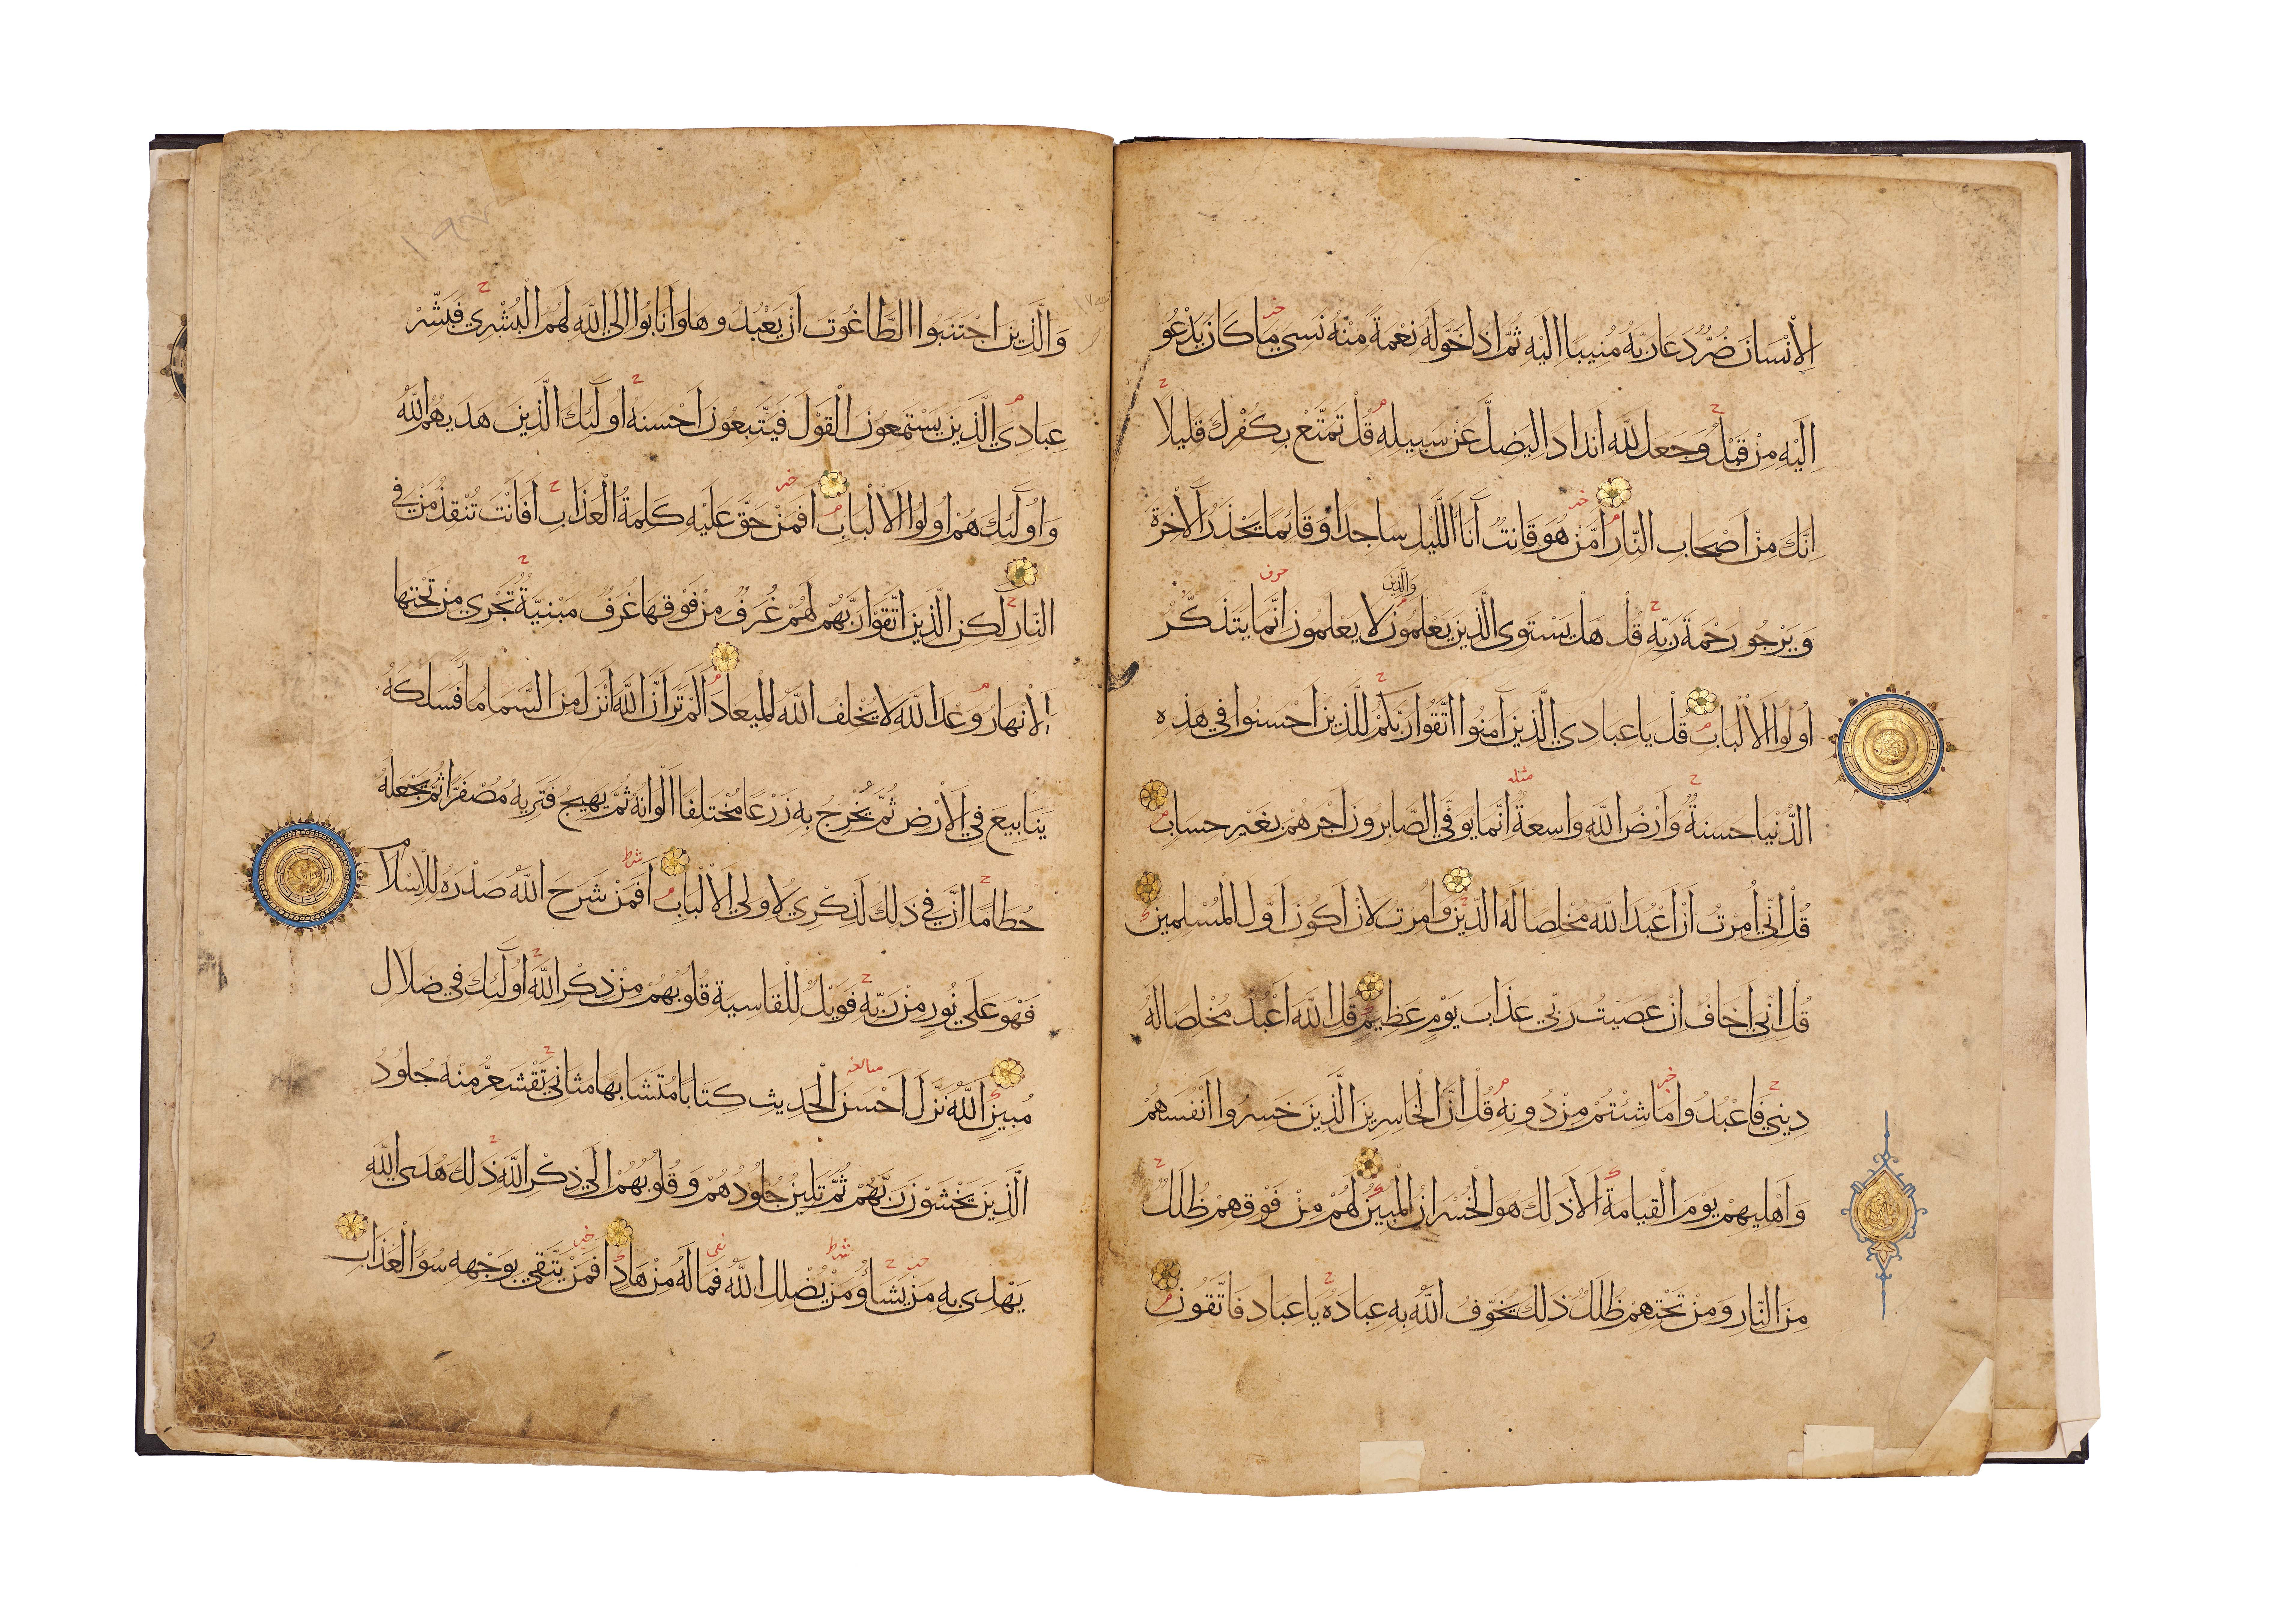 الْاِنْسَانَ ضُرٌّ دَعَا رَبَّهُ مُنِيبًا اِلَيْهِ ثُمَّ اِذَا خَوَّلَهُ نِعْمَةً مِنْهُ نَسِيَ مَا كَانَ يَدْعُو
اِلَيْهِ مِنْ قَبْلُ وَجَعَلَ لِلّٰهِ اَنْدَادًا لِيُضِلَّ عَنْ سَبِيلِهِ قُلْ تَمَتَّعْ بِكُفْرِكَ قَلِيلًا
اِنَّكَ مِنْ اَصْحَابِ النَّارِ اَمَّنْ هُوَ قَانِتٌ آنَاءَ اللَّيْلِ سَاجِدًا وَقَائِمًا يَحْذَرُ الْاٰخِرَةَ
وَيَرْجُو رَحْمَةَ رَبِّهِ قُلْ هَلْ يَسْتَوِى الَّذِينَ يَعْلَمُونَ وَالَّذِينَ لَا يَعْلَمُونَ اِنَّمَا يَتَذَكَّرُ
اُولُوا الْاَلْبَابِ قُلْ يَا عِبَادِي الَّذِينَ آمَنُوا اتَّقُوا رَبَّكُمْ لِلَّذِينَ اَحْسَنُوا فِي هٰذِهِ
الدُّنْيَا حَسَنَةٌ وَاَرْضُ اللّٰهِ وَاسِعَةٌ اِنَّمَا يُوَفَّى الصَّابِرُونَ اَجْرَهُمْ بِغَيْرِ حِسَابٍ
قُلْ اِنِّي اُمِرْتُ اَنْ اَعْبُدَ اللّٰهَ مُخْلِصًا لَهُ الدِّينَ وَاُمِرْتُ لِاَنْ اَكُونَ اَوَّلَ الْمُسْلِمِينَ
قُلْ اِنِّي اَخَافُ اِنْ عَصَيْتُ رَبِّي عَذَابَ يَوْمٍ عَظِيمٍ قُلِ اللّٰهَ اَعْبُدُ مُخْلِصًا لَهُ
دِينِي فَاعْبُدُوا مَا شِئْتُمْ مِنْ دُونِهِ قُلْ اِنَّ الْخَاسِرِينَ الَّذِينَ خَسِرُوا اَنْفُسَهُمْ
وَاَهْلِيهِمْ يَوْمَ الْقِيَامَةِ اَلَا ذٰلِكَ هُوَ الْخُسْرَانُ الْمُبِينُ لَهُمْ مِنْ فَوْقِهِمْ ظُلَلٌ
مِنَ النَّارِ وَمِنْ تَحْتِهِمْ ظُلَلٌ ذٰلِكَ يُخَوِّفُ اللّٰهُ بِهِ عِبَادَهُ يَا عِبَادِ فَاتَّقُونِ
وَالَّذِينَ اجْتَنَبُوا الطَّاغُوتَ اَنْ يَعْبُدُوهَا وَاَنَابُوا اِلَى اللّٰهِ لَهُمُ الْبُشْرٰي فَبَشِّرْ
عِبَادِي الَّذِينَ يَسْتَمِعُونَ الْقَوْلَ فَيَتَّبِعُونَ اَحْسَنَهُ اُولٰٓئِكَ الَّذِينَ هَدٰيهُمُ اللّٰهُ
وَاُولٰٓئِكَ هُمْ اُولُوا الْاَلْبَابِ اَفَمَنْ حَقَّ عَلَيْهِ كَلِمَةُ الْعَذَابِ اَفَاَنْتَ تُنْقِذُ مَنْ فِي
النَّارِ لٰكِنِ الَّذِينَ اتَّقَوْا رَبَّهُمْ لَهُمْ غُرَفٌ مِنْ فَوْقِهَا غُرَفٌ مَبْنِيَّةٌ تَجْرِي مِنْ تَحْتِهَا
الْاَنْهَارُ وَعْدَ اللّٰهِ لَا يُخْلِفُ اللّٰهُ الْمِيعَادَ اَلَمْ تَرَ اَنَّ اللّٰهَ اَنْزَلَ مِنَ السَّمَاءِ مَاءً فَسَلَكَهُ
يَنَابِيعَ فِي الْاَرْضِ ثُمَّ يُخْرِجُ بِهِ زَرْعًا مُخْتَلِفًا اَلْوَانُهُ ثُمَّ يَهِيجُ فَتَرٰيهُ مُصْفَرًّا ثُمَّ يَجْعَلُهُ
حُطَامًا اِنَّ فِي ذٰلِكَ لَذِكْرٰي لِاُولِي الْاَلْبَابِ اَفَمَنْ شَرَحَ اللّٰهُ صَدْرَهُ لِلْاِسْلَامِ
فَهْوَ عَلَي نُورٍ مِنْ رَبِّهِ فَوَيْلٌ لِلْقَاسِيَةِ قُلُوبُهُمْ مِنْ ذِكْرِ اللّٰهِ اُولٰٓئِكَ فِي ضَلَالٍ
مُبِينٍ اَللّٰهُ نَزَّلَ اَحْسَنَ الْحَدِيثِ كِتَابًا مُتَشَابِهًا مَثَانِيَ تَقْشَعِرُّ مِنْهُ جُلُودُ
الَّذِينَ يَخْشَوْنَ رَبَّهُمْ ثُمَّ تَلِينُ جُلُودُهُمْ وَقُلُوبُهُمْ اِلَي ذِكْرِ اللّٰهِ ذٰلِكَ هُدَى اللّٰهِ
يَهْدِى بِهِ مَنْ يَشَاءُ وَمَنْ يُضْلِلِ اللّٰهُ فَمَا لَهُ مِنْ هَادٍ اَفَمَنْ يَتَّقِي بِوَجْهِهِ سُوءَ الْعَذَابِ